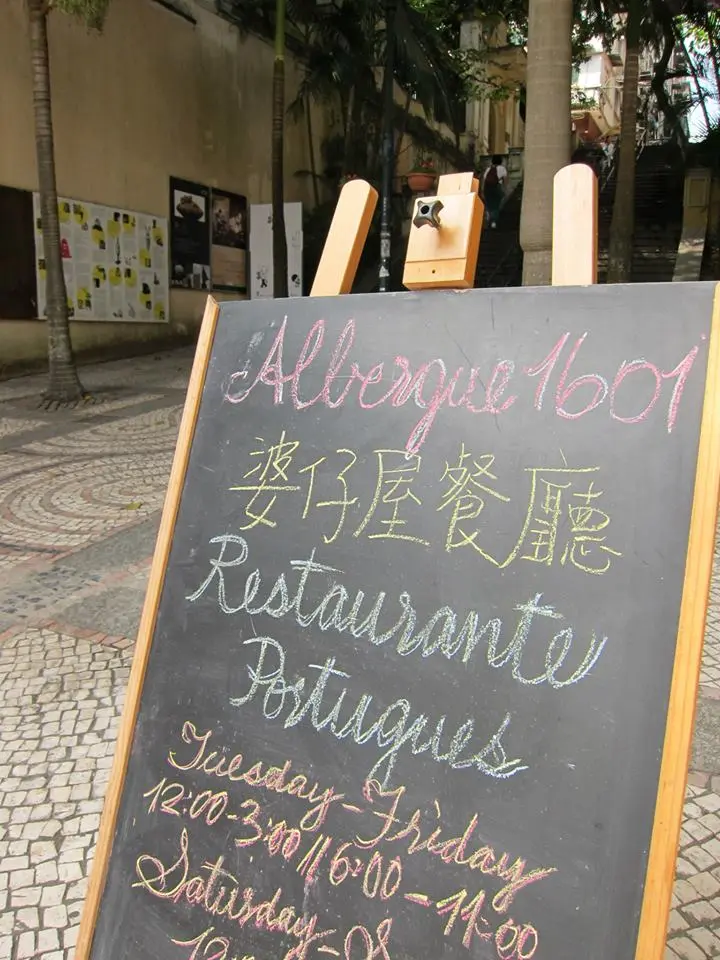 Albergue 1601
婆仔屋餐廳
Restaurante
Portugues
Tuesday-Friday
12:00-3:00 // 6:00 - 11:00
Saturday-